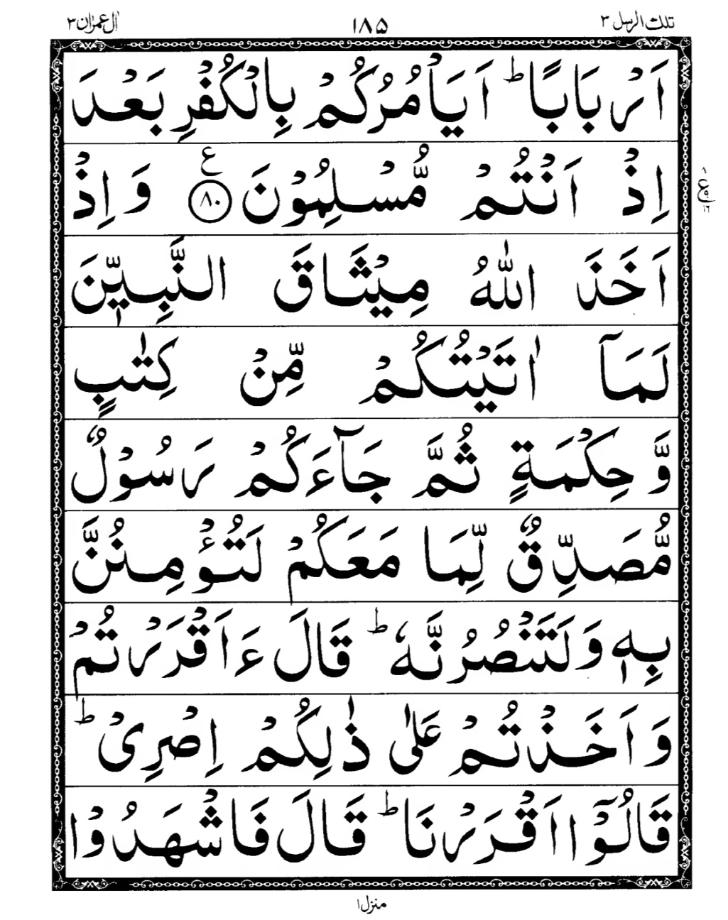 تلك الرسل ٣ ١٨٥ اٰل عمرٰن ٣
اَرْبَابًا ؕ اَيَاْمُرُكُمْ بِالْكُفْرِ بَعْدَ
اِذْ اَنْتُمْ مُّسْلِمُوْنَ ۧ ﴿۸۰﴾ وَ اِذْ
اَخَذَ اللّٰهُ مِيْثَاقَ النَّبِيّٖنَ
لَمَاۤ اٰتَيْتُكُمْ مِّنْ كِتٰبٍ
وَّ حِكْمَةٍ ثُمَّ جَآءَكُمْ رَسُوْلٌ
مُّصَدِّقٌ لِّمَا مَعَكُمْ لَتُؤْمِنُنَّ
بِهٖ وَ لَتَنْصُرُنَّهٗ ؕ قَالَ ءَاَقْرَرْتُمْ
وَ اَخَذْتُمْ عَلٰى ذٰلِكُمْ اِصْرِيْ ؕ
قَالُوْۤا اَقْرَرْنَا ؕ قَالَ فَاشْهَدُوْا
منزل ١